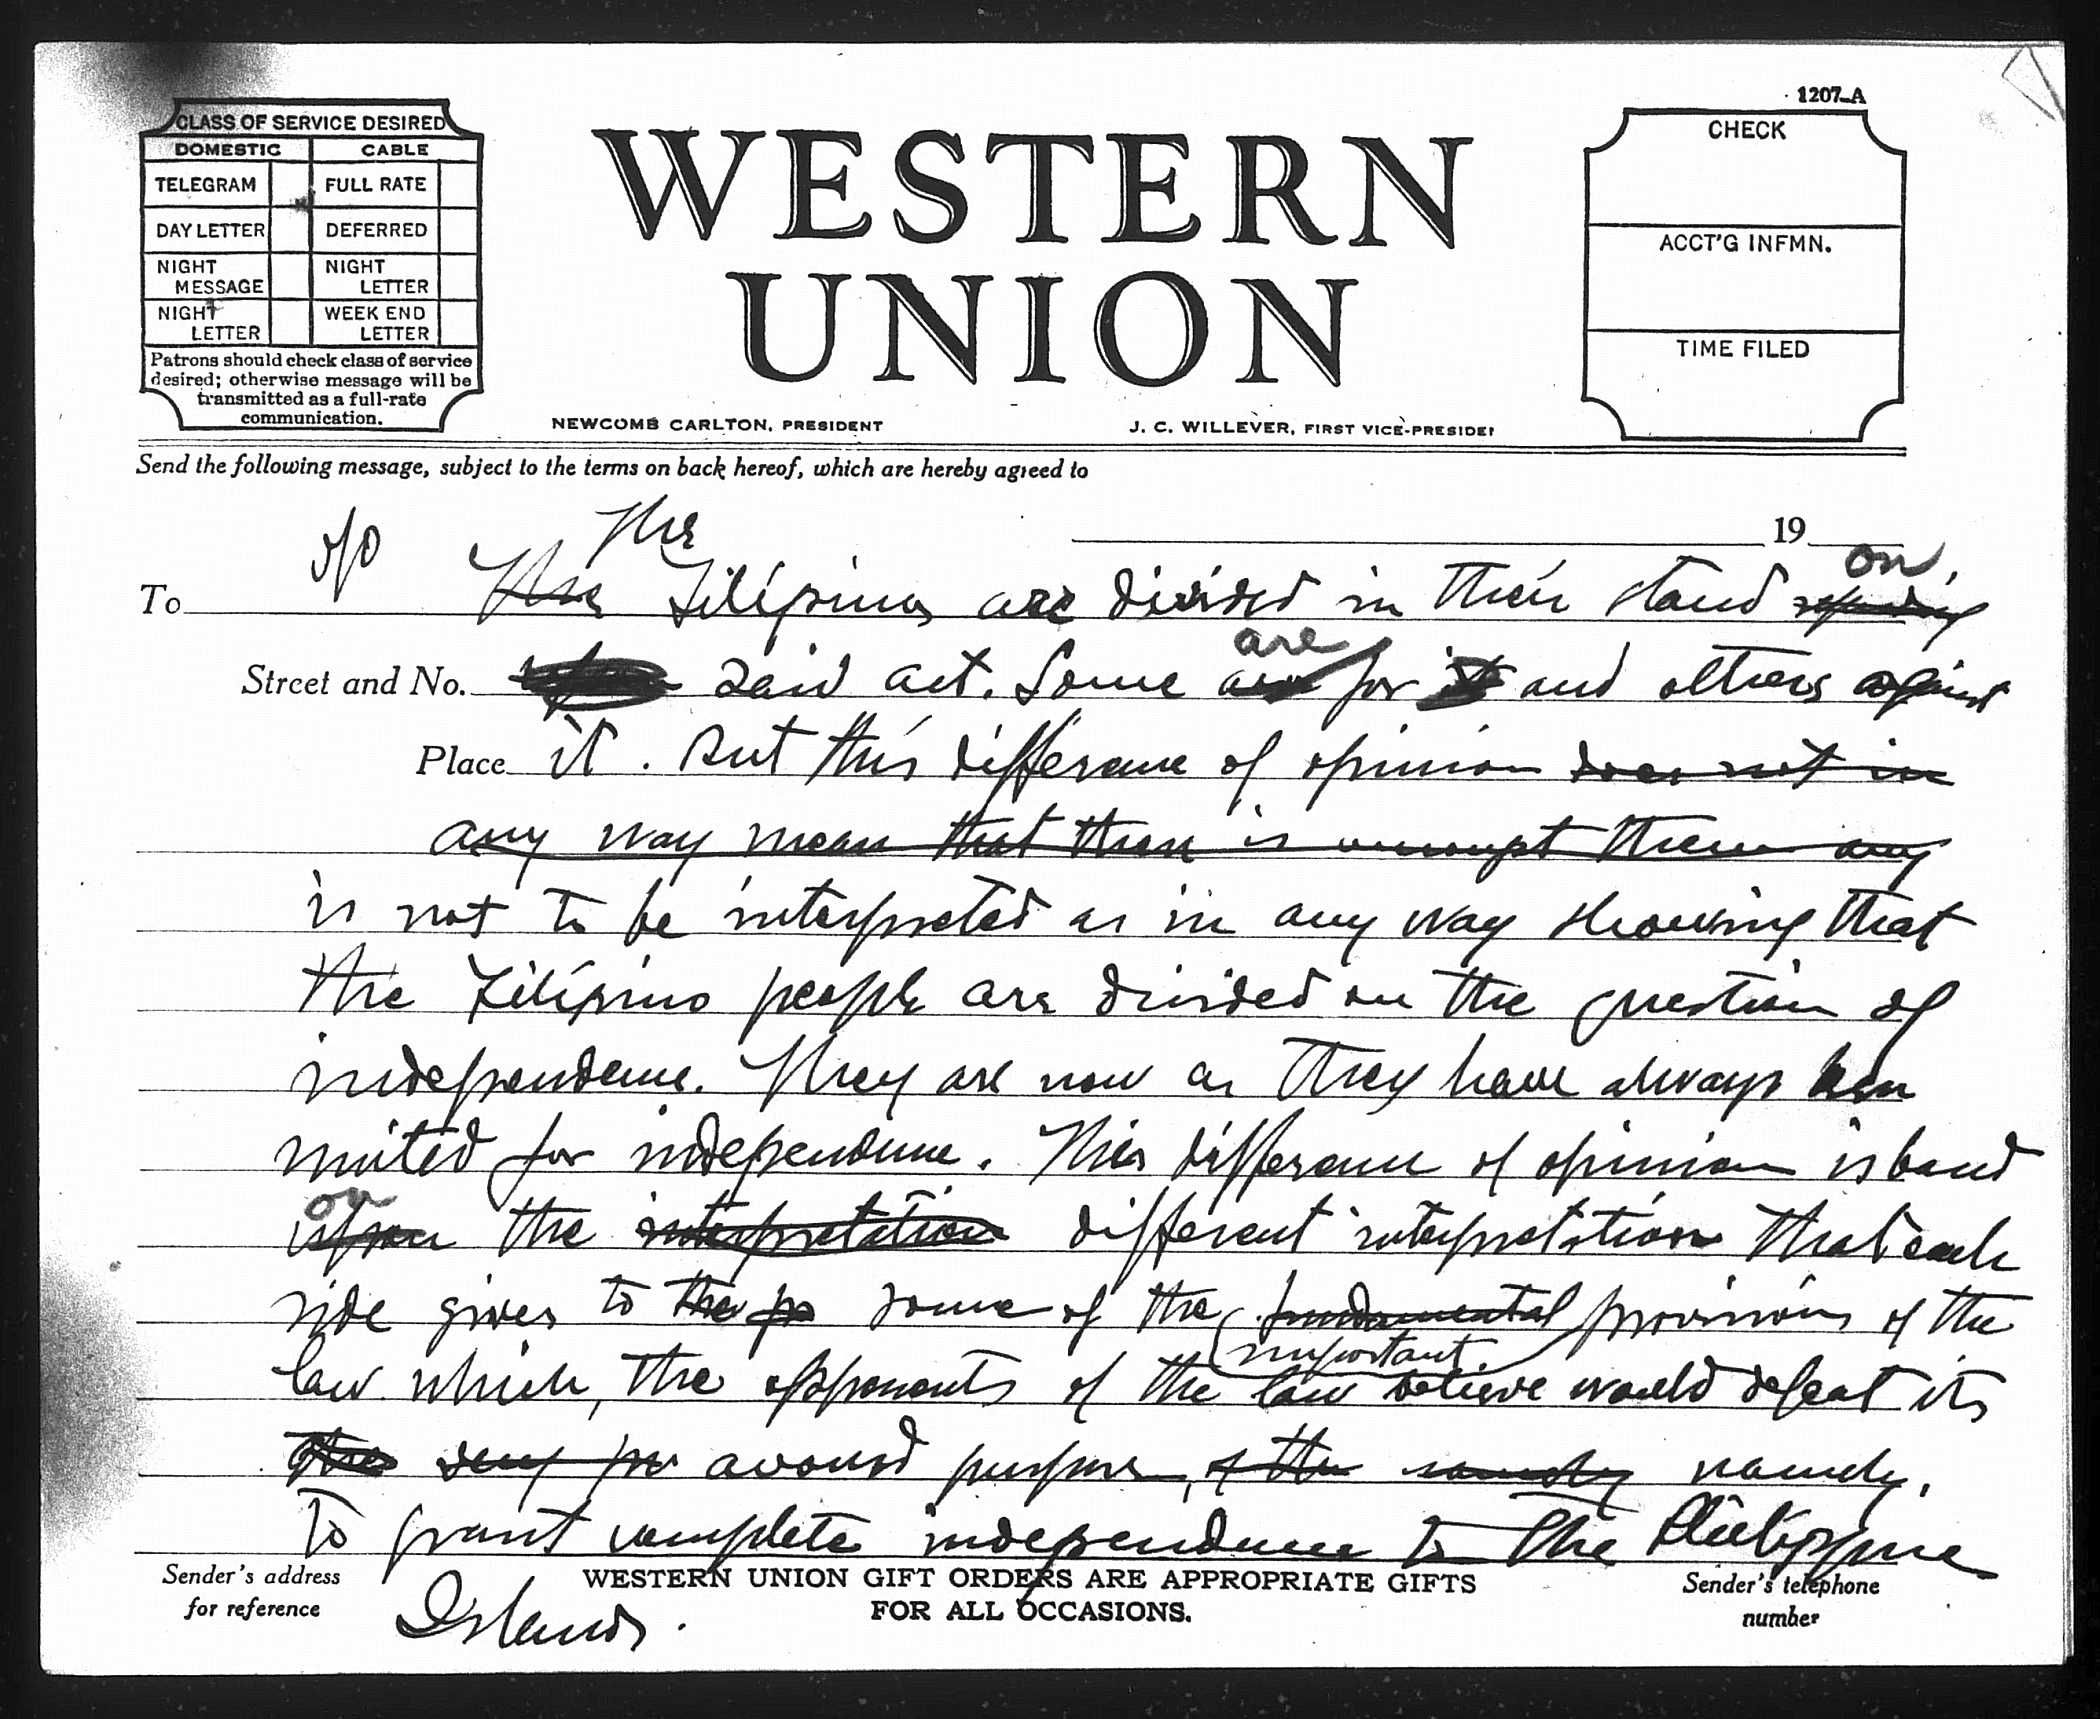 1207-A
CLASS OF SERVICE DESIRED
DOMESTIC CABLE
TELEGRAM FULL RATE
DAY LETTER DEFERRED
NIGHT MESSAGE NIGHT LETTER
NIGHT LETTER WEEK END LETTER
Patrons should check class of service
desired; otherwise message will be
transmitted as a full-rate
communication.
WESTERN
UNION
NEWCOMB CARLTON, PRESIDENT J. C. WILLEVER, FIRST VICE-PRESIDENT
CHECK
ACCT'G INFMN.
TIME FILED
Send the following message, subject to the terms on back hereof, which are hereby agreed to
19
The
on
To The Filipinos are divided in their stand
are
Street and No. said act. Some are for it and others against
Place it. But this difference of opinion does not in
any way mean that there is amongst them any
is not to be interpreted as in any way showing that
the Filipino people are divided on the question of
independence. They are now as they have always been
united for independence. This difference of opinion is based
on
upon the interpretation different interpretation that each
side gives to the po some of the fundamental provisions of the
important
law which, the opponents of the law believe would defeat its
the very avowed purpose, of the namely namely,
to grant complete independence to the Philippine
Islands.
Sender's address
for reference
WESTERN UNION GIFT ORDERS ARE APPROPRIATE GIFTS
FOR ALL OCCASIONS.
Sender's telephone
number